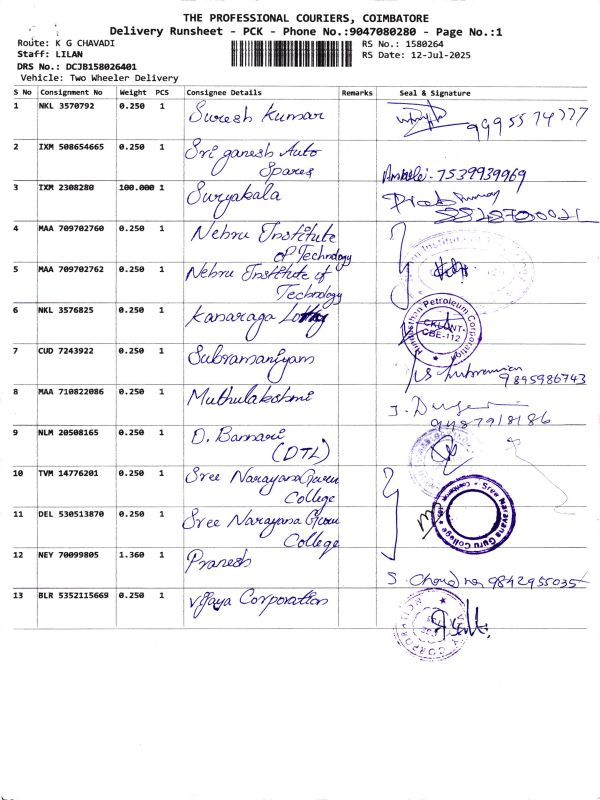 THE PROFESSIONAL COURIERS, COIMBATORE
Delivery Runsheet - PCK - Phone No.:9047080280 - Page No.:1
Route: K G CHAVADI
RS No.: 1580264
Staff: LILAN
RS Date: 12-Jul-2025
DRS No.: DCJB158026401
Vehicle: Two Wheeler Delivery
S No Consignment No Weight PCS Consignee Details Remarks Seal & Signature
1 NKL 3570792 0.250 1 Suresh Kumar
9995574777
2 IXM 508654665 0.250 1 Sri ganesh Auto
Spares
7539939969
3 IXM 2308280 100.000 1 Suryakala
4 MAA 709702760 0.250 1 Nehru Institute
of Technology
5 MAA 709702762 0.250 1 Nehru Institute of
Technology
6 NKL 3576825 0.250 1 Kanaraga
Hindusthan Petroleum Corporation
CBE-112
7 CUD 7243922 0.250 1 Subramaniyam
9895986743
8 MAA 710822086 0.250 1 Muthulakshmi
9 NLM 20508165 0.250 1 D. Bannari
(DTL)
10 TVM 14776201 0.250 1 Sree Narayana Guru
College
11 DEL 530513870 0.250 1 Sree Narayana Guru
College
Sree Narayana Guru College
12 NEY 70099805 1.360 1 Pranesh
9842955035
13 BLR 5352115669 0.250 1 Vijaya Corporation